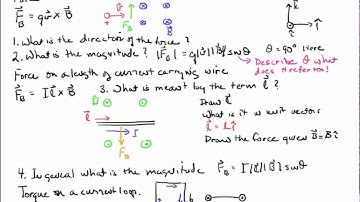 F_B = qv × B
1. What is the direction of the force?
2. What is the magnitude? |F_B| = q|v||B| sinθ θ = 90° Here
Describe θ what does it refer to?
Force on a length of current carrying wire
F_B = I l × B
3. What is meant by the term l?
Draw l
What is it in unit vectors
l = l î
Draw the force given B = B
4. In general what is the magnitude F_B = I|l||B| sinθ
Torque on a current loop.